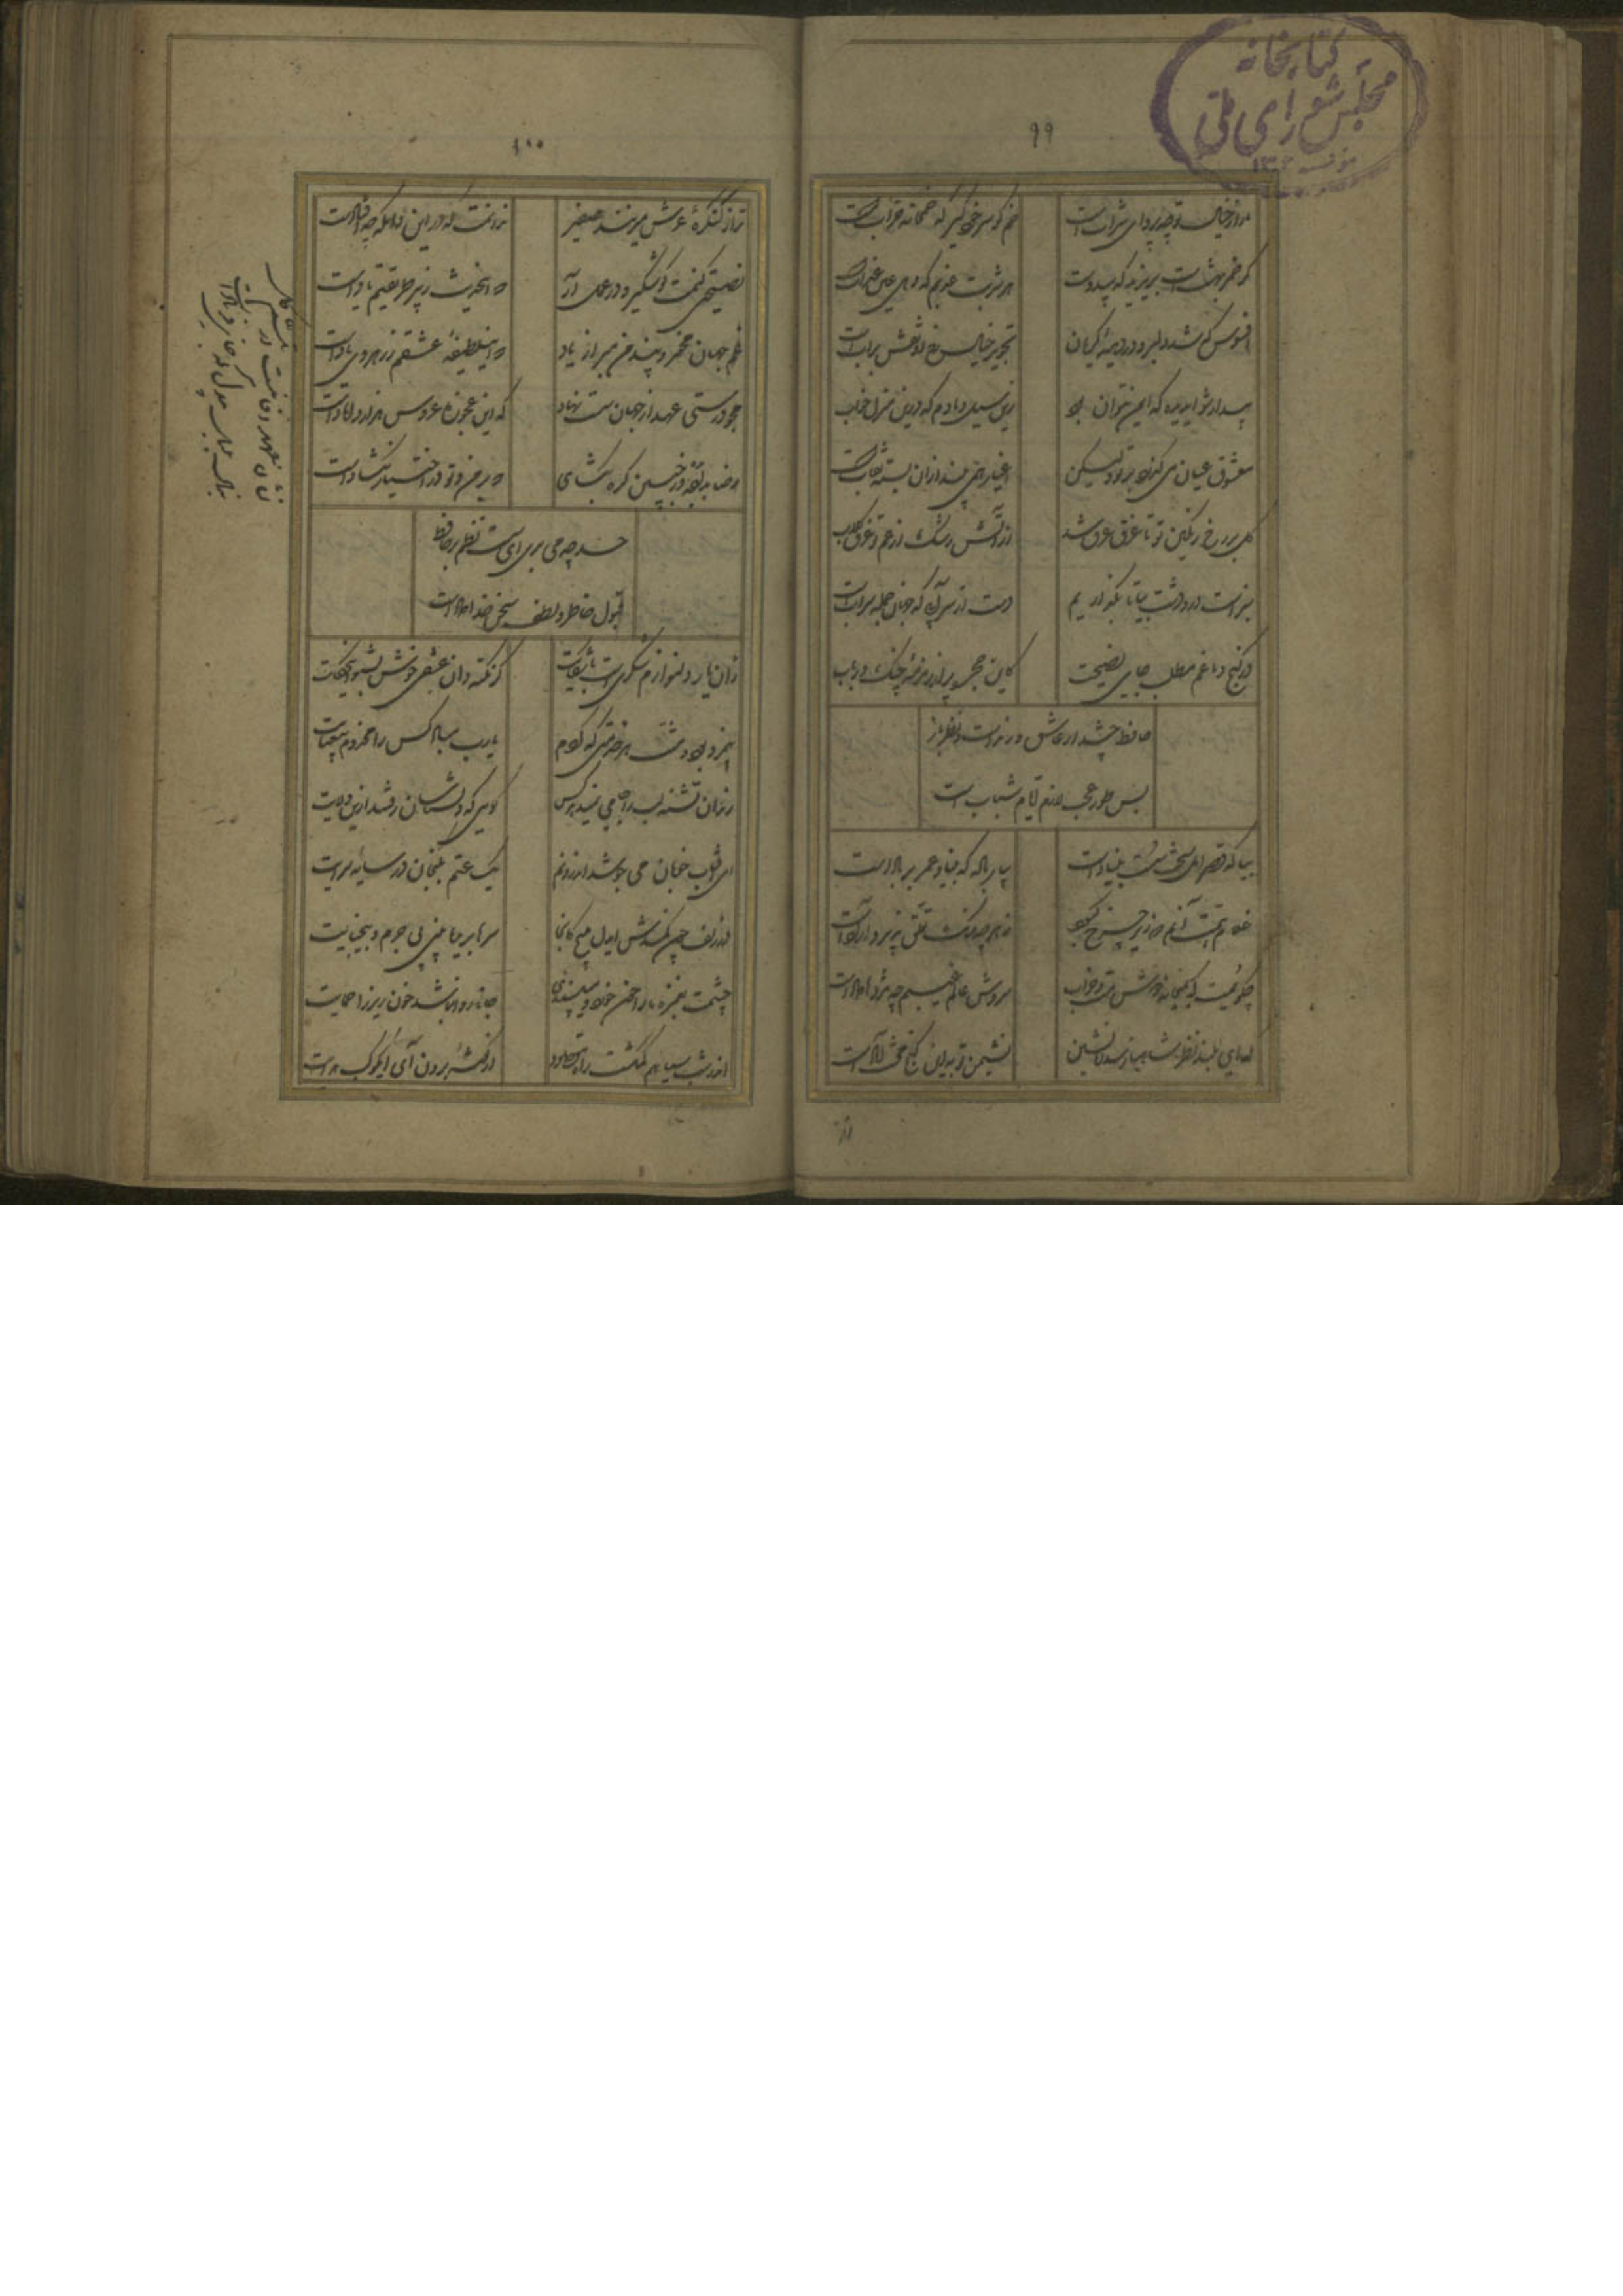 کتابخانه
مجلس شورای ملی
۹۹
ما را ز خیال تو چه پروای شرابست
خم گو سر خود گیر که خمخانه خرابست
گر خمر بهشت است بریزید که بیدوست
هر شربت عذبم که دهی عین عذابست
افسوس که شد دلبر و در دیده گریان
تحریر خیال خط او نقش برابست
بیدار شو ایدیده که ایمن نتوان بود
زین سیل دمادم که درین منزل خوابست
معشوق عیان می گذرد بر تو ولیکن
اغیار همی بیند از آن بسته نقابست
گل بر رخ رنگین تو تا غرق عرق شد
در آتش رشک از غم تو غرق گلابست
سبز است در و دشت بیا تا نگذاریم
دست از سر آبی که جهان جمله سرابست
در کنج دماغم مطلب جای نصیحت
کاین حجره پر از زمزمه چنک و ربابست
حافظ چه شد ار عاشق و رندست و نظرباز
بس طور عجب لازم ایام شبابست
بیا که قصر امل سخت سست بنیادست
بیار باده که بنیاد عمر بر بادست
غلام همت آنم که زیر چرخ کبود
ز هر چه رنگ تعلق پذیرد آزادست
چگویمت که بمیخانه دوش مست و خراب
سروش عالم غیبم چه مژدها دادست
که ای بلند نظر شاهباز سدره نشین
نشیمن تو نه این کنج محنت آبادست
۱۰۰
ترا ز کنگره عرش میزنند صفیر
ندانمت که در این دامگه چه افتادست
نصیحتی کنمت یاد گیر و در عمل آر
که اینحدیث ز پیر طریقتم یادست
غم جهان مخور و پند من مبر از یاد
که اینلطیفه عشقم ز رهروی یادست
مجو درستی عهد از جهان سست نهاد
که این عجوزه عروس هزار دامادست
رضا بداده بده وز جبین گره بگشای
که بر من و تو در اختیار نگشادست
حسد چه می بری ای سست نظم بر حافظ
قبول خاطر و لطف سخن خدادادست
زان یار دلنوازم شکریست با شکایت
گر نکته دان عشقی خوش بشنو اینحکایت
بیمزد بود و منت هر خدمتی که کردم
یارب مباد کس را مخدوم بیعنایت
رندان تشنه لب را جامی نمیدهد کس
گویی که ولی شناسان رفتند ازین ولایت
ای آفتاب خوبان می جوشد اندرونم
یک ساعتم بگنجان در سایه عنایت
در زلف چون کمندش ایدل مپیچ کانجا
سرها بریده بینی بی جرم و بیجنایت
چشمت بغمزه ما را خون خورد و میپسندی
جانا روا نباشد خون ریز را حمایت
در این شب سیاهم گم گشت راه مقصود
از گوشه برون آی ای کوکب هدایت